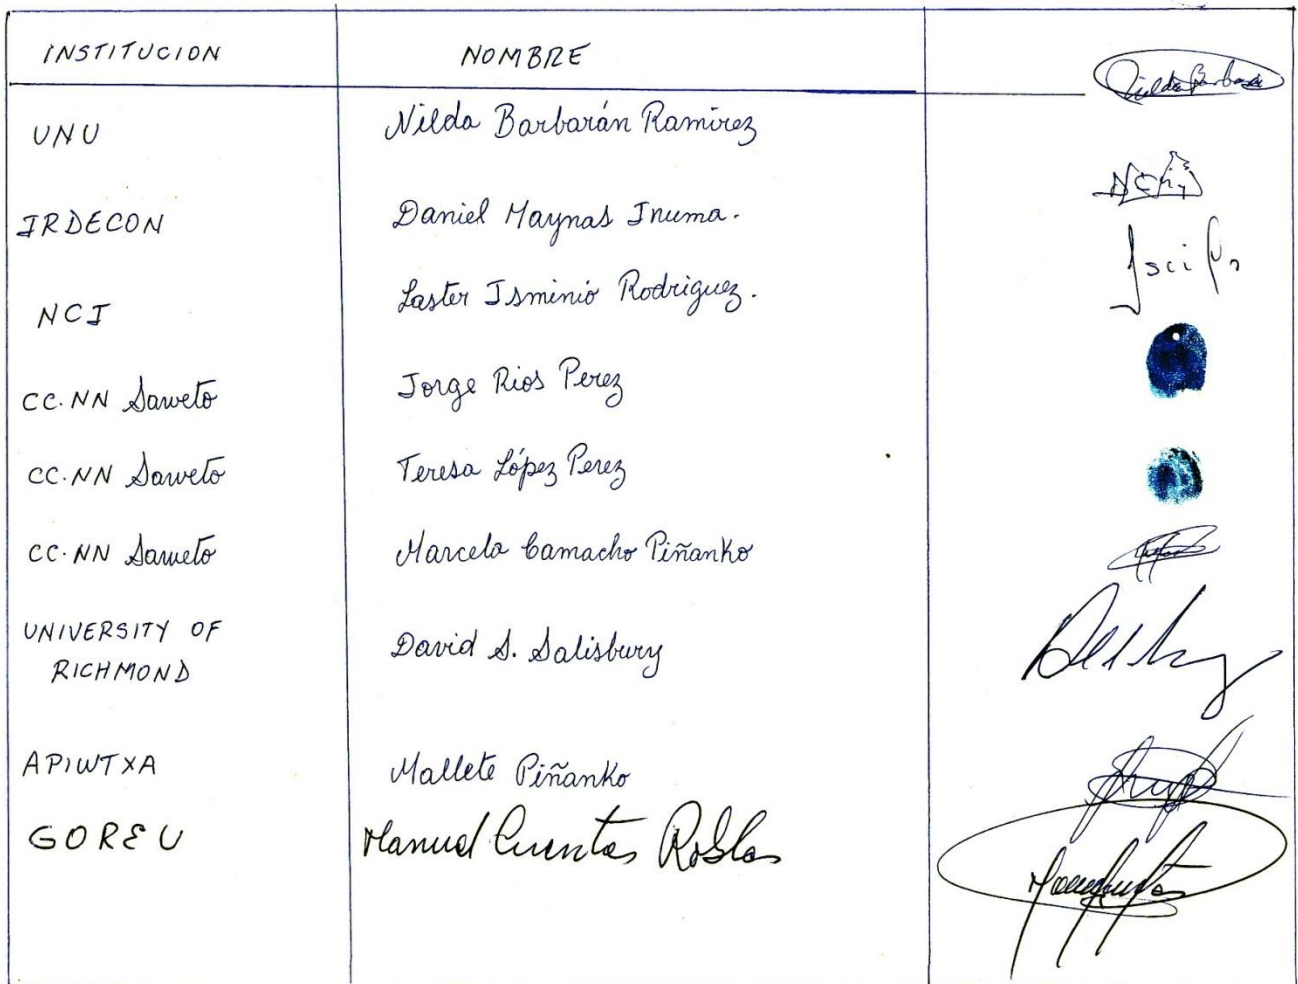 INSTITUCION NOMBRE
UNU Nilda Barbarán Ramirez
IRDECON Daniel Maynas Inuma.
NCI Laster Isminio Rodriguez.
CC.NN Saweto Jorge Rios Perez
CC.NN Saweto Teresa López Perez
CC.NN Saweto Marcela Camacho Piñanko
UNIVERSITY OF
RICHMOND David S. Salisbury
APIWTXA Mallete Piñanko
GOREU Manuel Cuentas Robles